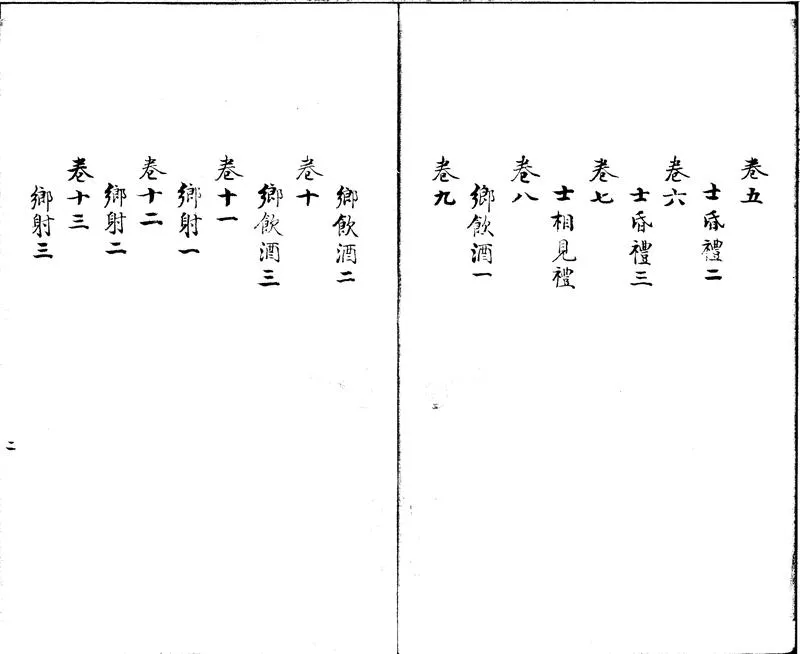 卷五
士昏禮二
卷六
士昏禮三
卷七
士相見禮
卷八
鄉飲酒一
卷九
鄉飲酒二
卷十
鄉飲酒三
卷十一
鄉射一
卷十二
鄉射二
卷十三
鄉射三
二